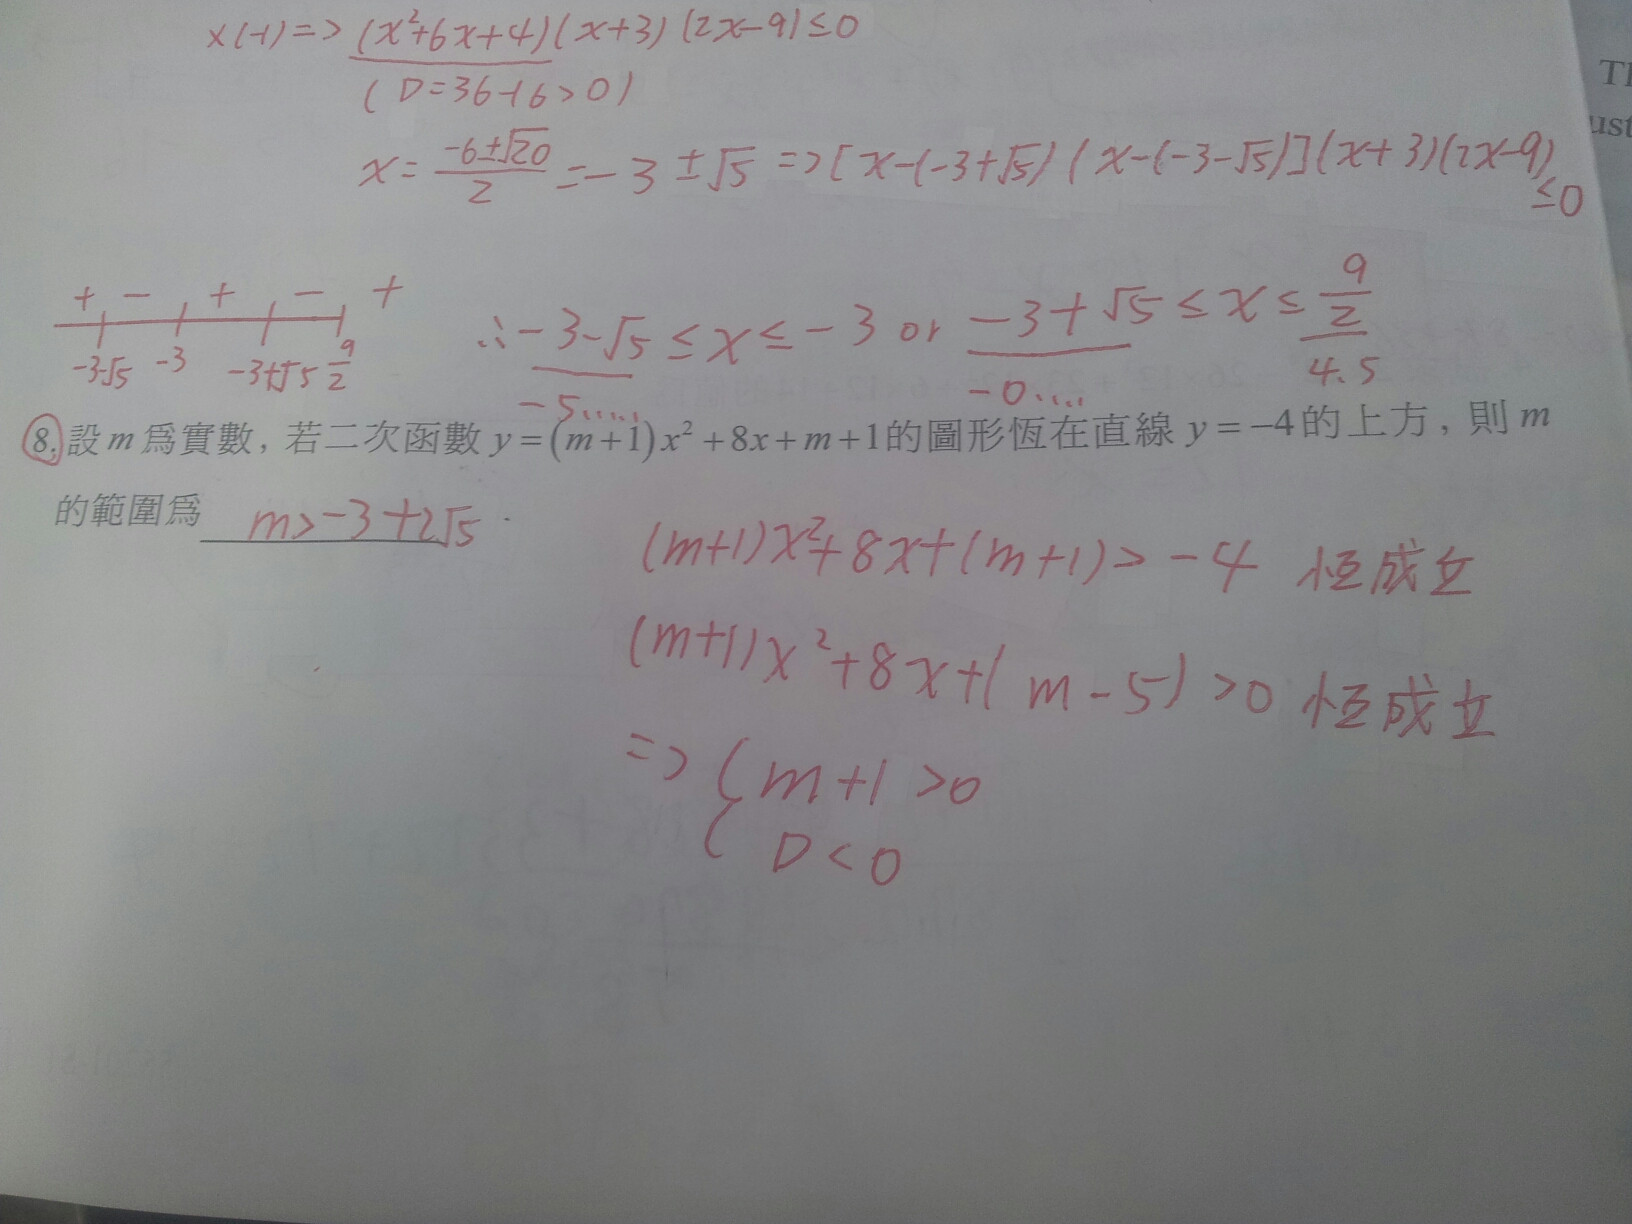 x(-1)=> (x²+6x+4)(x+3)(2x-9)≤0
(D=36-16>0)
x= -6±√20/2 =-3±√5 =>[x-(-3+√5)(x-(-3-√5)](x+3)(2x-9)
≤0
+ - + - +
-3-√5 -3 -3+√5 9/2
∴-3-√5≤x≤-3 or -3+√5≤x≤9/2
-5..... -0.... 4.5
8.設m為實數,若二次函數y=(m+1)x²+8x+m+1的圖形恆在直線y=-4的上方,則m
的範圍為 m>-3+2√5.
(m+1)x²+8x+(m+1)>-4 恆成立
(m+1)x²+8x+(m-5)>0 恆成立
=> { m+1>0
D<0